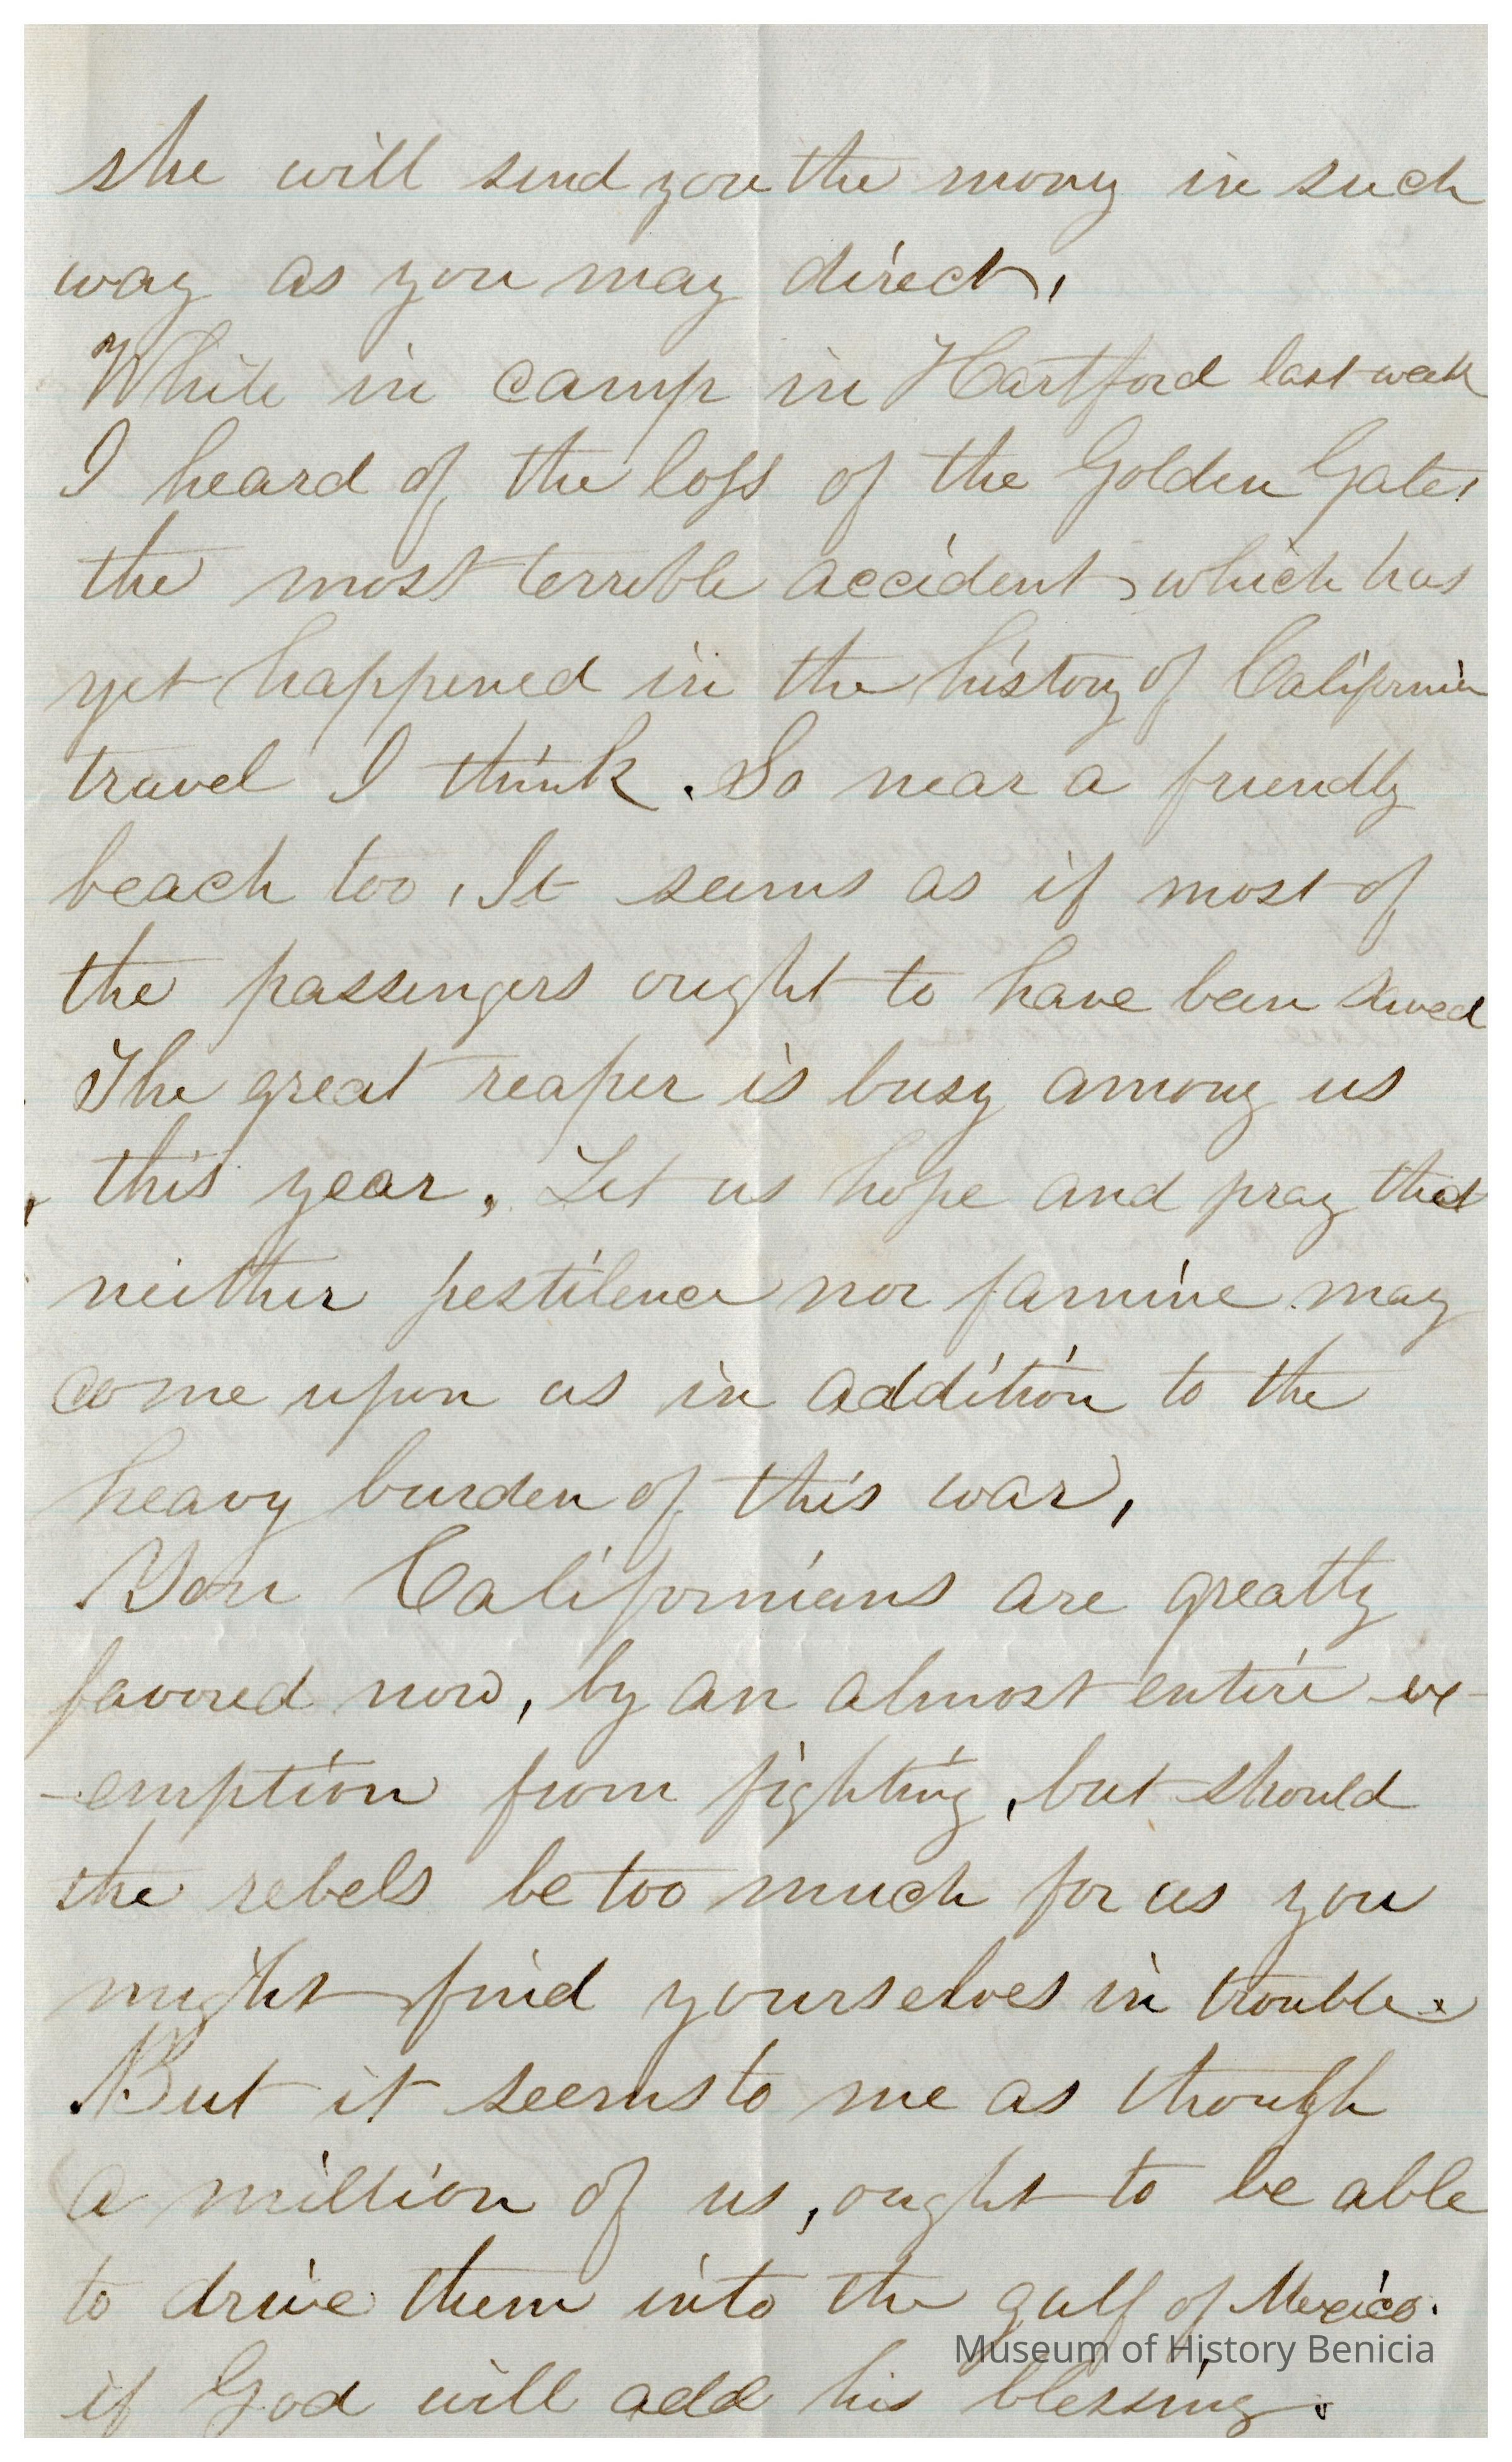 she will send you the mony in such
way as you may direct.
While in camp in Hartford last week
I heard of the loss of the Golden Gate,
the most terrible accident, which has
yet happened in the history of California
travel I think. So near a friendly
beach too, It seems as if most of
the passengers ought to have been saved
The great reaper is busy among us
this year. Let us hope and pray that
neither pestilence nor famine may
come upon us in addition to the
heavy burden of this war,
You Californians are greatly
favored now, by an almost entire ex-
-emption from fighting, but should
the rebels be too much for us you
might find yourselves in trouble.
But it seems to me as though
a million of us, ought to be able
to drive them into the gulf of Mexico.
if God will add his blessing.
Museum of History Benicia